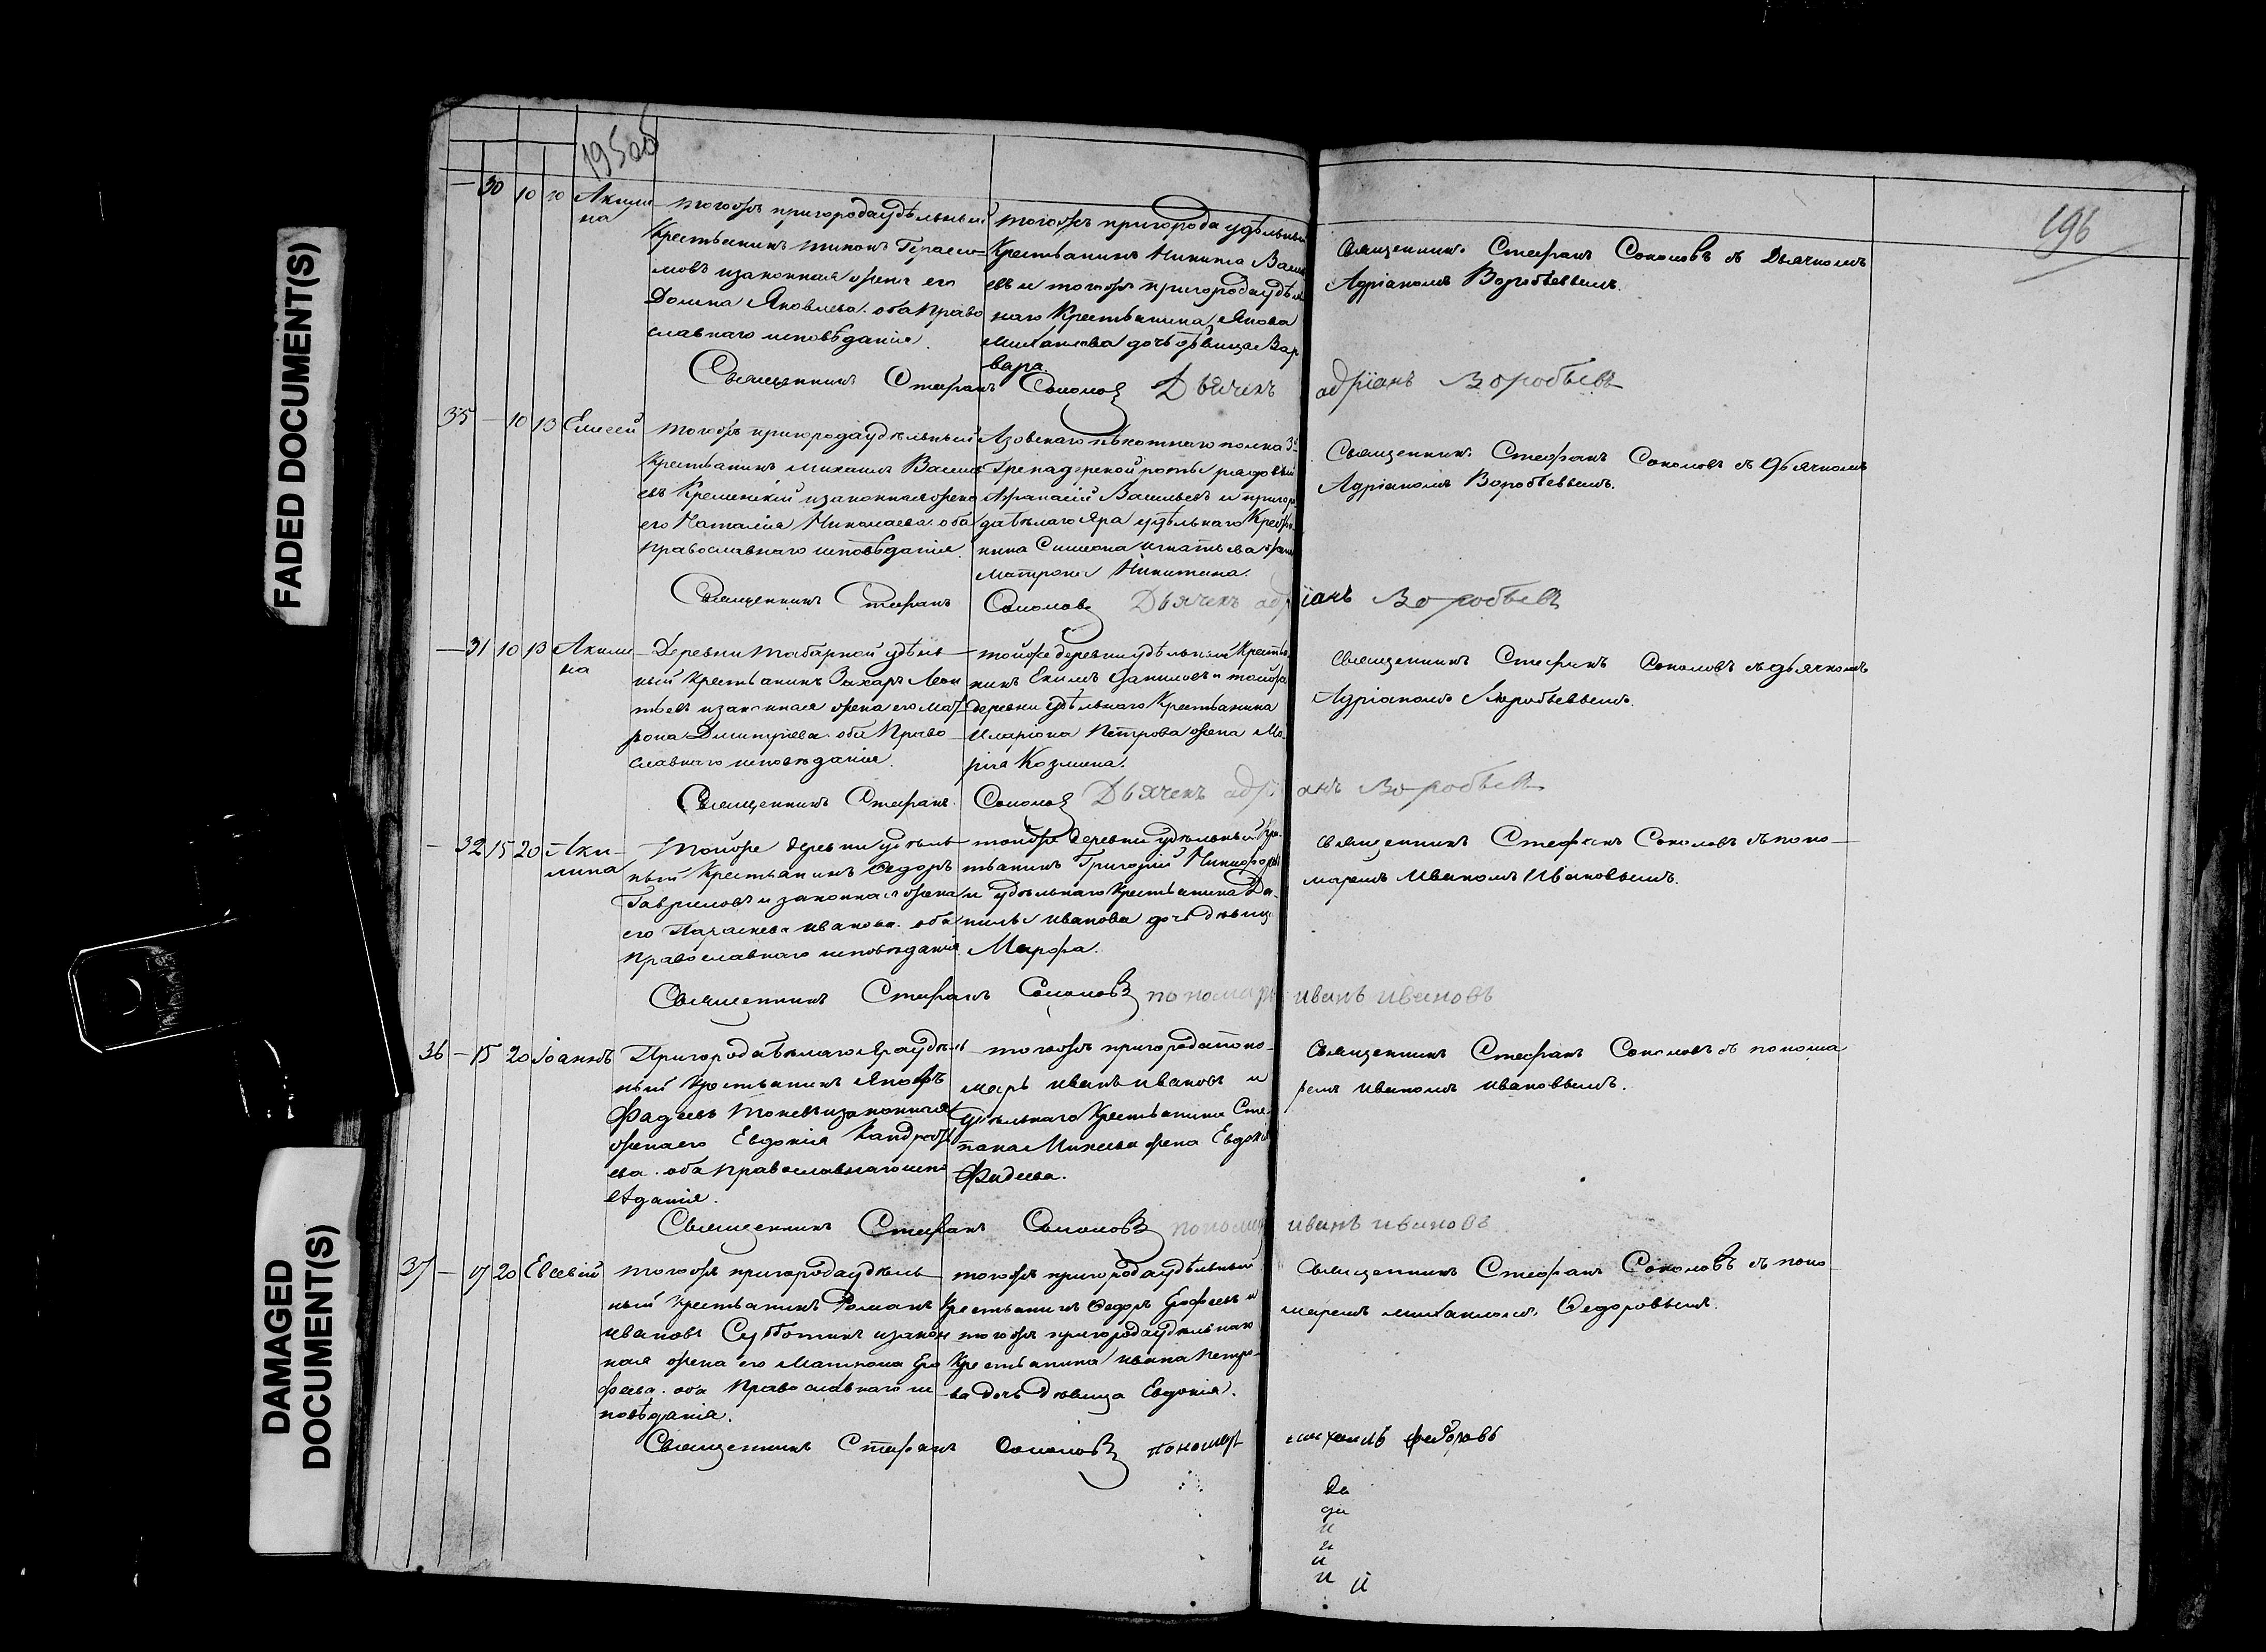 FADED DOCUMENT(S)
DAMAGED
DOCUMENT(S)
195об
196
— 30 10 10 Акили
на
тогожъ пригорода удѣльный
Крестьянинъ Тихонъ Гераси-
мовъ и законная жена его
Домна Яковлева. оба право
славнаго исповѣданія.
тогожъ пригорода удѣльный
Крестьянинъ Никита Васил
евъ и тогожъ пригорода удѣль
наго Крестьянина Якова
Михаилова дочь дѣвица Вар
вара.
Священникъ Стефанъ Соколовъ съ Дьячкомъ
Адріаномъ Воробьевымъ.
Священникъ Стефанъ Соколовъ Дьячекъ адріанъ Воробьевъ
35 — 10 13 Елисей
тогожъ пригорода удѣльный
Крестьянинъ Михаилъ Василь
евъ Кременскій и законная жена
его Наталія Николаева. оба
православнаго исповѣданія.
Азовскаго пѣхотнаго полка 3й
Гренадерской роты рядовый
Афанасій Васильевъ и пригоро
да бѣлаго Яра удѣльнаго Крестья
нина Симеона Игнатьева жена
Матрона Никитина.
Священникъ Стефанъ Соколовъ съ дьячкомъ
Адріаномъ Воробьевымъ.
Священникъ Стефанъ Соколовъ Дьячекъ адріанъ Воробьевъ
— 31 10 13 Акили
на
Деревни Табарной удѣль
ный крестьянинъ Захаръ Леон
тьевъ и законная жена его Мат
рона Димитріева. оба Право
славнаго исповѣданія.
тойже деревни удѣльный Крестья
нинъ Екимъ Даниловъ и тойже
деревни удѣльнаго Крестьянина
Иларіона Петрова жена Ма-
рія Козмина.
Священникъ Стефанъ Соколовъ съ дьячкомъ
Адріаномъ Воробьевымъ.
Священникъ Стефанъ Соколовъ Дьячекъ адріанъ Воробьевъ
— 32 15 20 Аки-
лина
Тойже деревни удѣль
ный Крестьянинъ Ѳедоръ
Гавриловъ и законная жена
его Параскева Иванова. оба
православнаго исповѣданія.
тойже деревни удѣльный Кре-
стьянинъ Григорій Никифоровъ
и удѣльнаго Крестьянина Да-
нилы Иванова дочь дѣвица
Марфа.
Священникъ Стефанъ Соколовъ съ поно-
маремъ Иваномъ Ивановымъ.
Священникъ Стефанъ Соколовъ пономарь иванъ ивановъ
36 — 15 20 Іоаннъ
Пригорода бѣлаго Яра удѣль
ный Крестьянинъ Яковъ
Фадеевъ и законная
жена его Евдокія Кандрать
ева. оба православнаго испо
вѣданія.
тогожъ пригорода поно-
марь Иванъ Ивановъ и
удѣльнаго Крестьянина Сте-
пана Михеева жена Евдокія
Фадеева.
Священникъ Стефанъ Соколовъ съ понома
ремъ Иваномъ Ивановымъ.
Священникъ Стефанъ Соколовъ пономарь иванъ ивановъ
37 — 17 20 Евсевій
тогожъ пригорода удѣль-
ный Крестьянинъ Романъ
Ивановъ Субботинъ и закон
ная жена его Матрона Еро
феева. оба Православнаго ис
повѣданія.
тогожъ пригорода удѣльный
Крестьянинъ Ѳедоръ Ерофеевъ и
тогожъ пригорода удѣльнаго
Крестьянина Ивана Петро-
ва дочь дѣвица Евдокія.
Священникъ Стефанъ Соколовъ съ поно-
маремъ Михаиломъ Ѳедоровымъ.
Священникъ Стефанъ Соколовъ пономарь михаилъ федоровъ